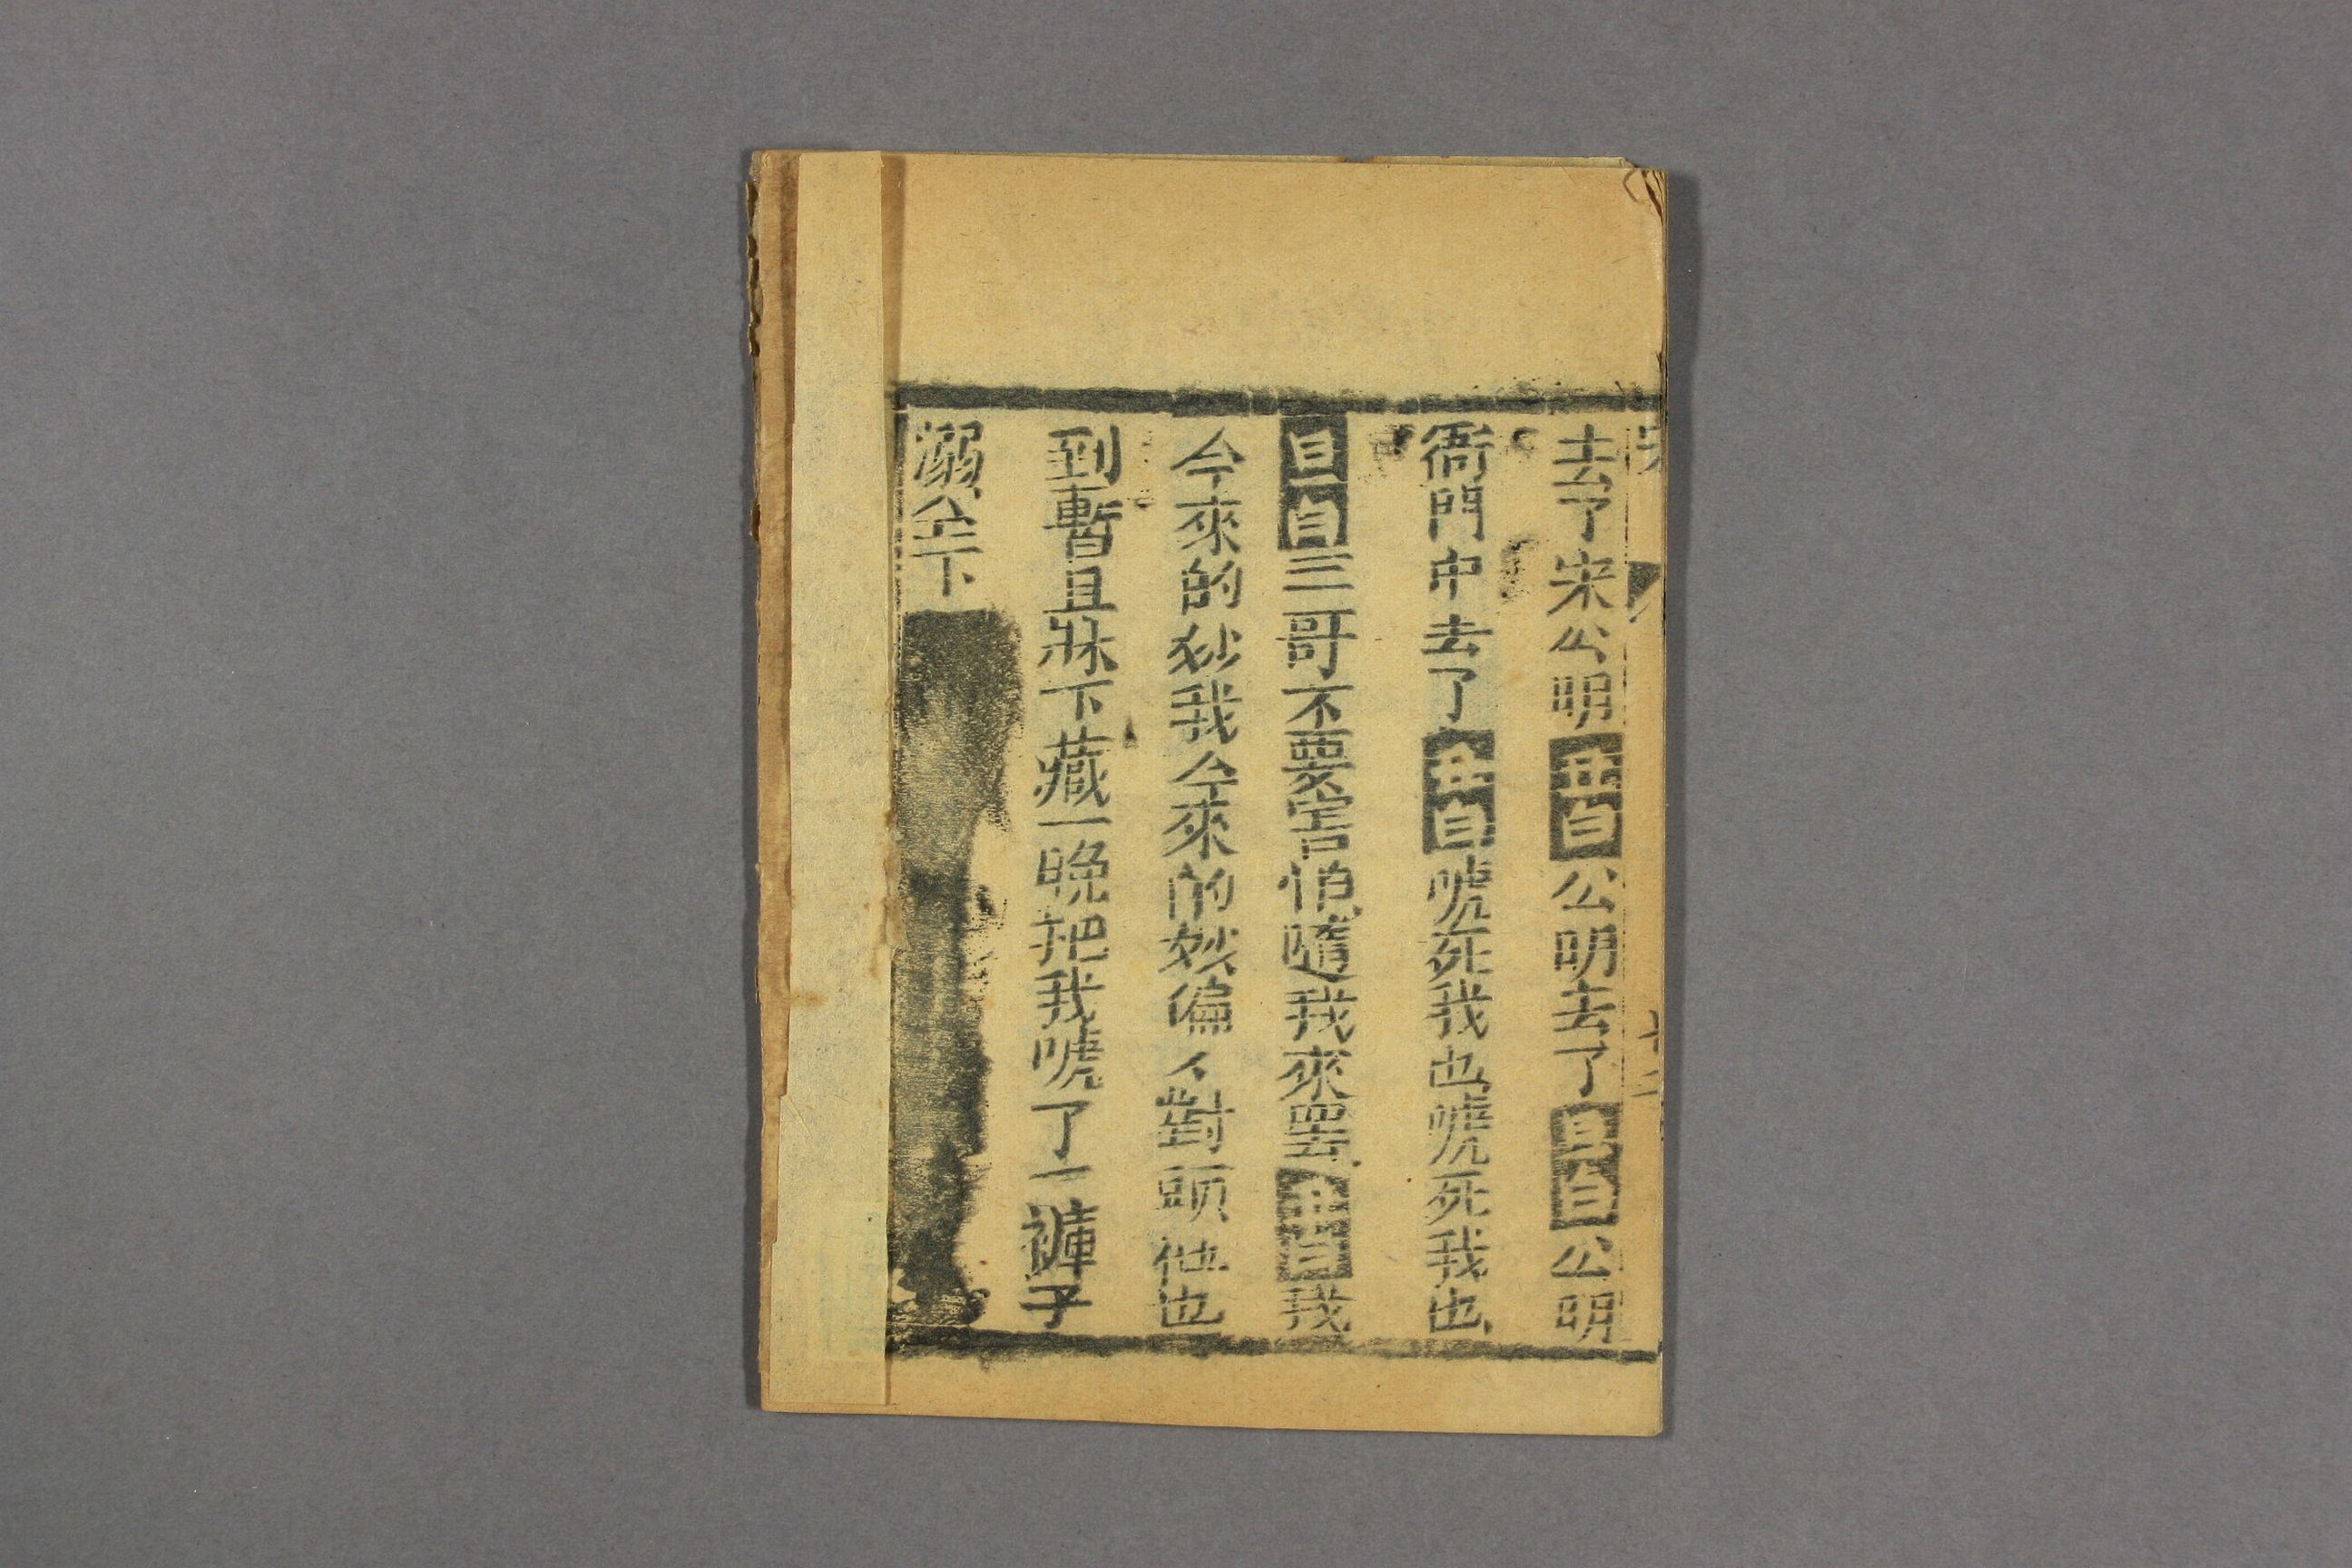 去了宋公明丑白公明去了旦白公明
衙門中去了丑白唬死我也唬死我也
旦白三哥不要害怕隨我來罢丑白我
今來的妙我今來的妙偏人對頭他也
到暫且牀下藏一晚把我唬了一褲子
溺仝下